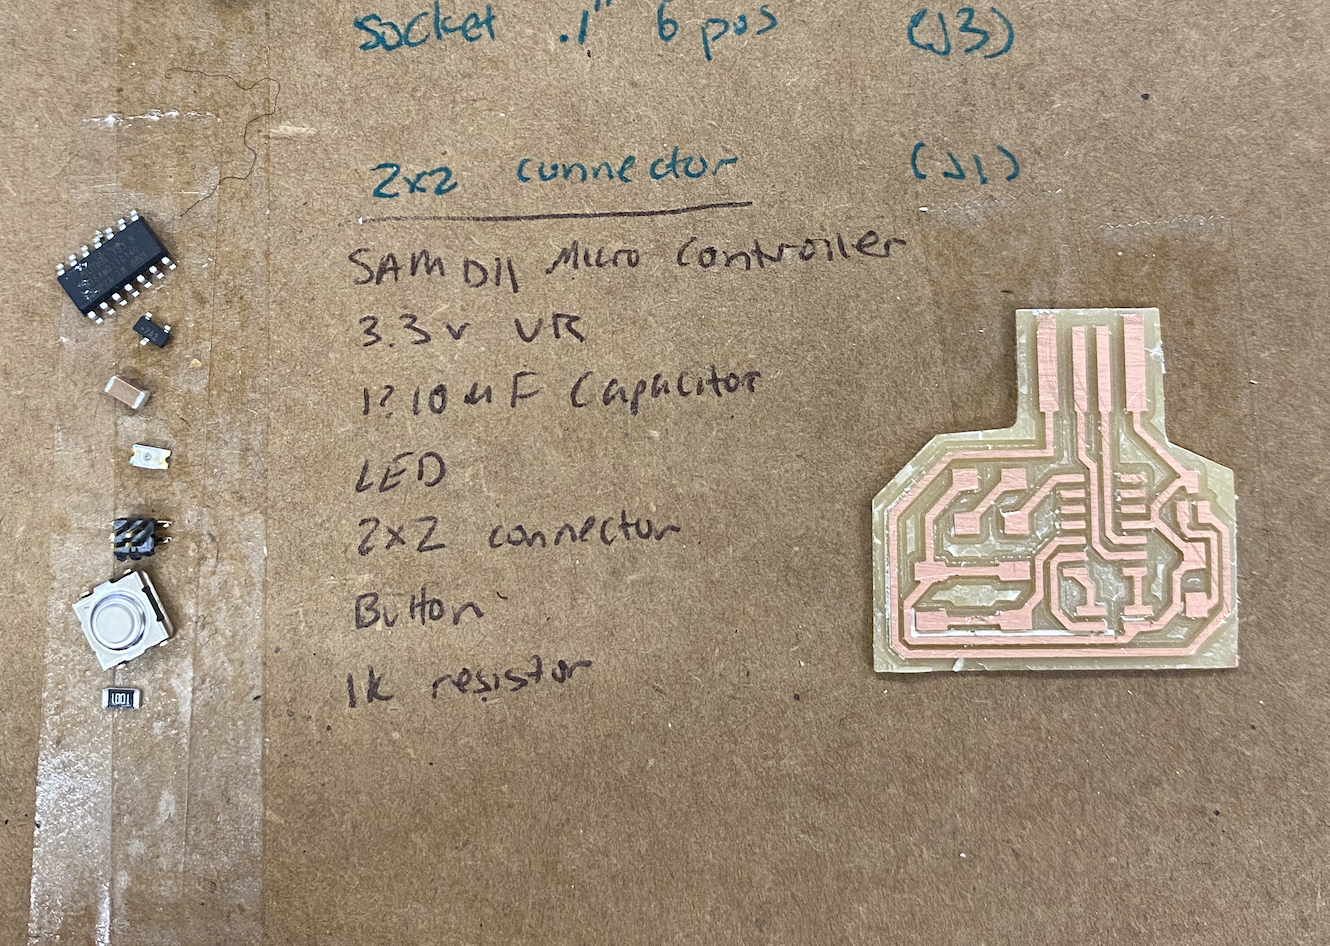 socket .1" 6 pos (J3)
2x2 connector (J1)
SAM D11 Micro Controller
3.3v VR
1? 10 uF Capacitor
LED
2x2 connector
Button
1k resistor
1001